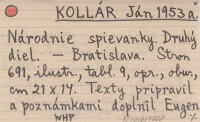 KOLLÁR Ján 1953 a.
Národnie spievanky. Druhý
diel. — Bratislava. Stron
691, ilustr., tabl. 9, opr., obw.,
cm 21 x 14. Texty pripravil
a poznámkami doplnil Eugen
WHP